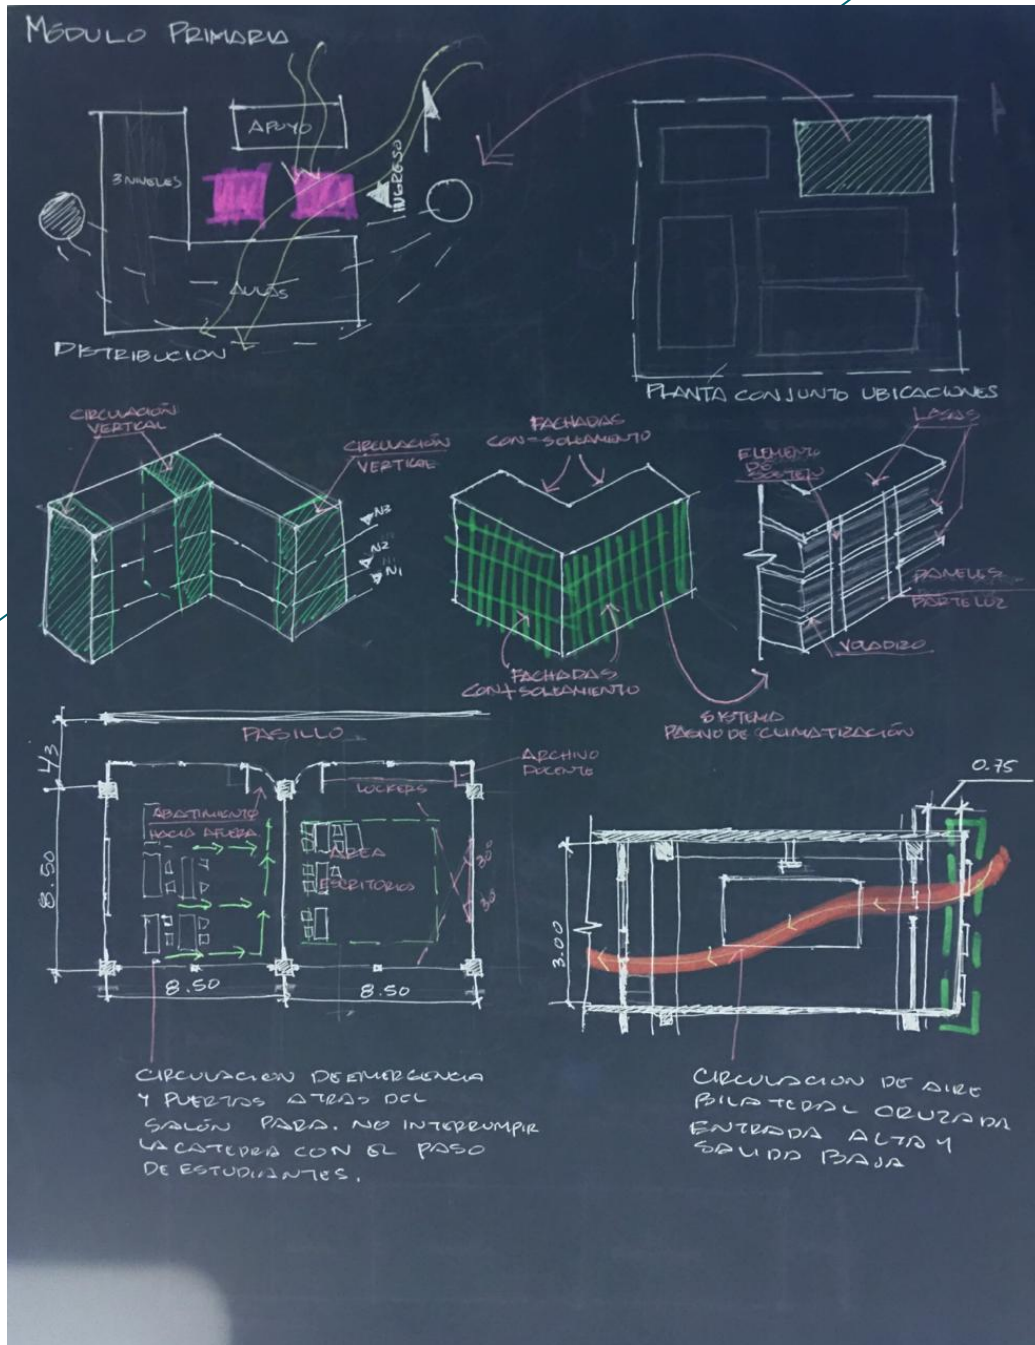 MÓDULO PRIMARIA
APOYO
3 NIVELES
INGRESO
AULAS
DISTRIBUCION
PLANTA CONJUNTO UBICACIONES
CIRCULACIÓN
VERTICAL
CIRCULACIÓN
VERTICAL
N3
N2
N1
FACHADAS
CON - SOLEAMIENTO
FACHADAS
CON + SOLEAMIENTO
LOSAS
ELEMENTO
DE
SOSTEN
PANELES
PARTELUZ
VOLADIZO
SISTEMA
PASIVO DE CLIMATIZACIÓN
PASILLO
ARCHIVO
DOCENTE
LOCKERS
ABATIMIENTO
HACIA AFUERA
AREA
ESCRITORIOS
30°
30°
8.50
8.50
8.50
0.75
3.00
CIRCULACION DE EMERGENCIA
Y PUERTAS ATRAS DEL
SALÓN PARA. NO INTERRUMPIR
LA CATEDRA CON EL PASO
DE ESTUDIANTES.
CIRCULACION DE AIRE
BILATERAL CRUZADA
ENTRADA ALTA Y
SALIDA BAJA